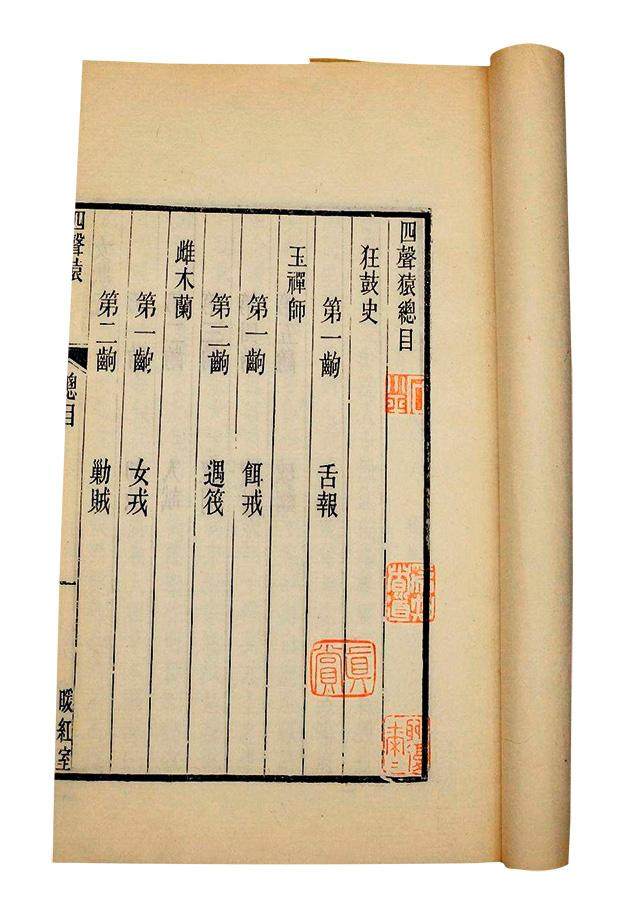 四聲猿總目
狂鼓史
第一齣 舌報
玉禪師
第一齣 餌戒
第二齣 遇筏
雌木蘭
第一齣 女戎
第二齣 勦賊
四聲猿
總目
一
暖紅室
真賞